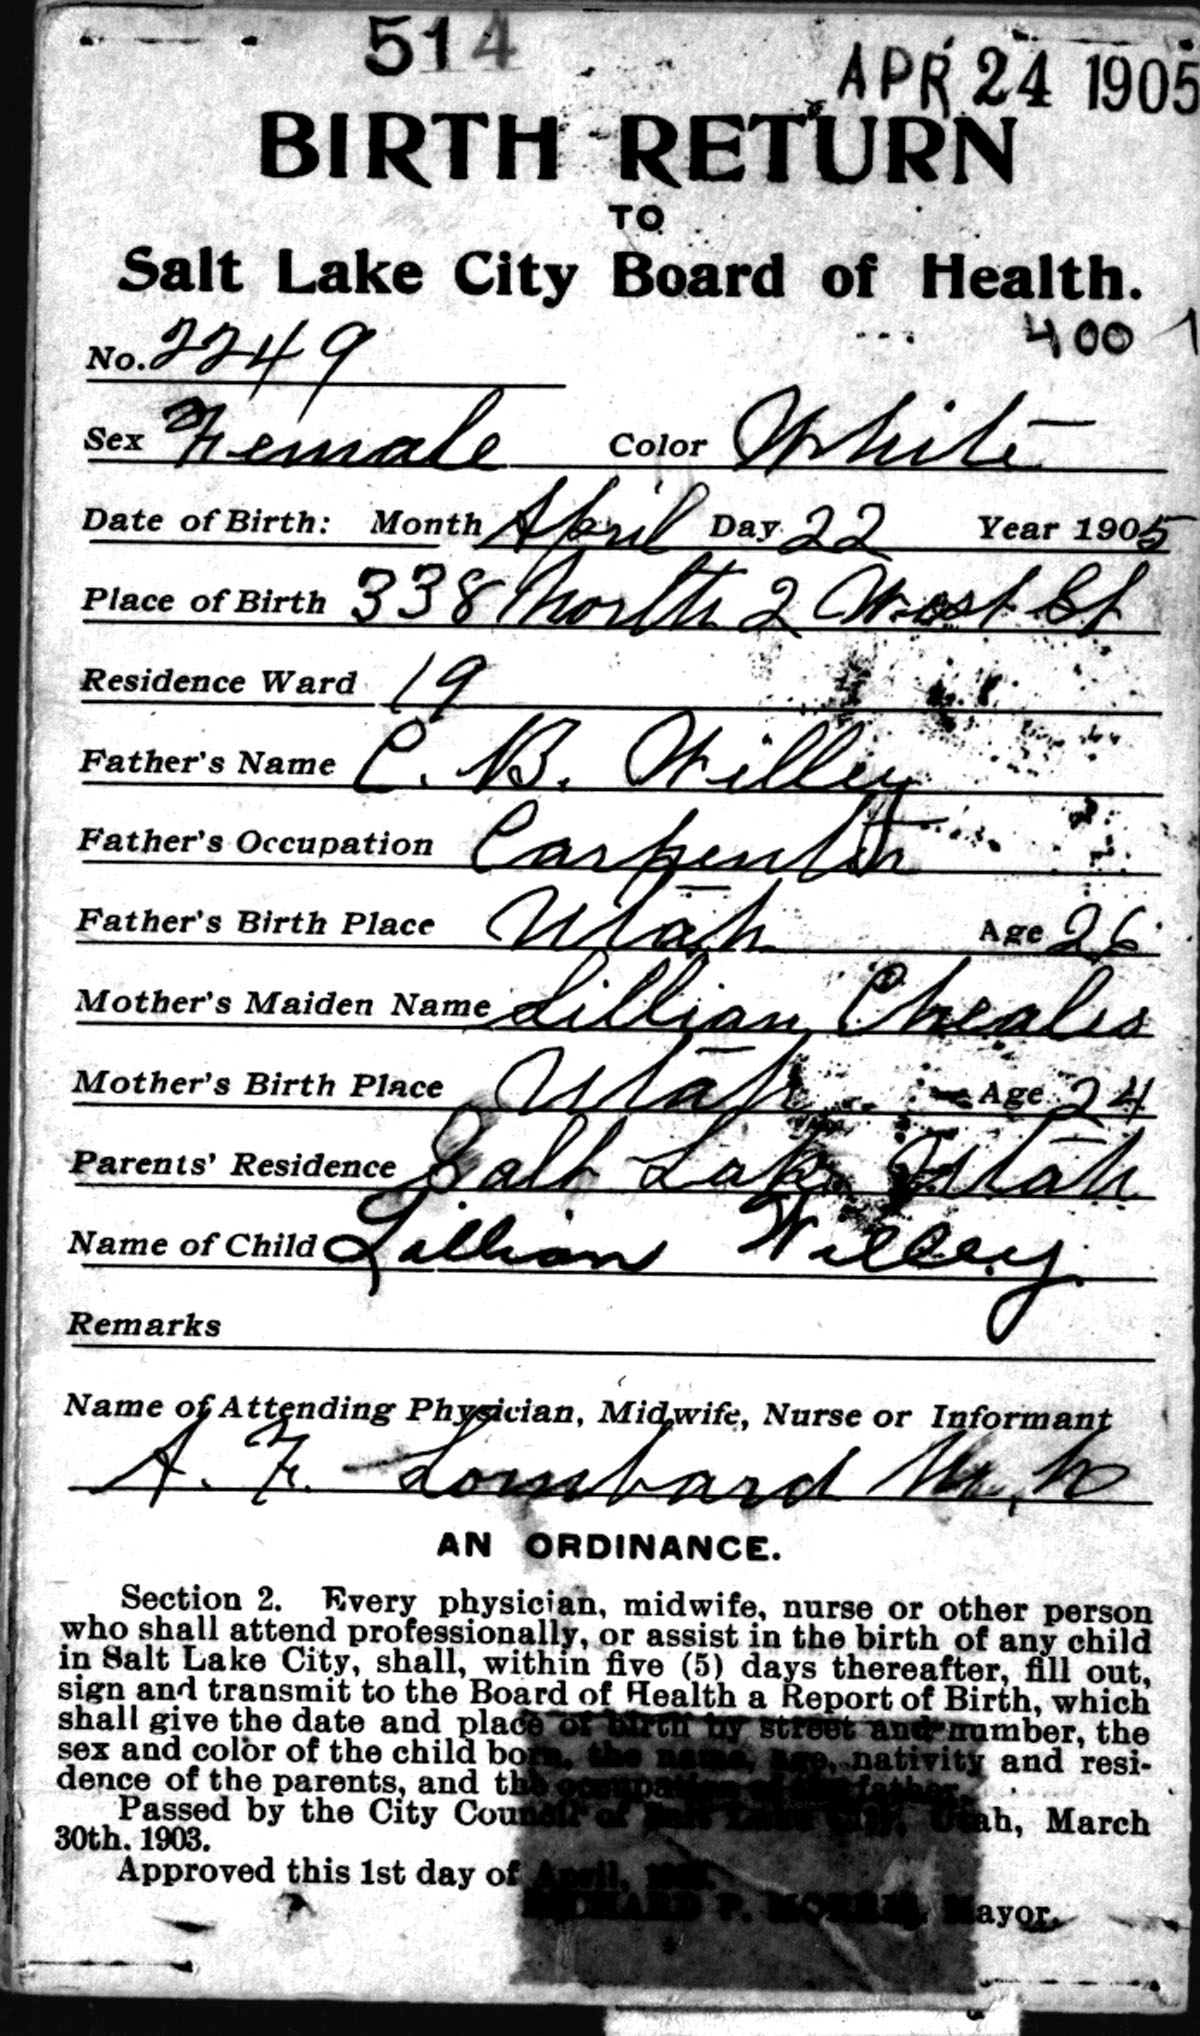 514
APR 24 1905
BIRTH RETURN
TO
Salt Lake City Board of Health.
400
No. 2249
Sex Female Color White
Date of Birth: Month April Day 22 Year 1905
Place of Birth 338 North 2 West St
Residence Ward 19
Father's Name C. B. Willey
Father's Occupation Carpenter
Father's Birth Place Utah Age 26
Mother's Maiden Name Lillian Cheales
Mother's Birth Place Utah Age 24
Parents' Residence Salt Lake Utah
Name of Child Lillian Willey
Remarks
Name of Attending Physician, Midwife, Nurse or Informant
A. F. Lombard
AN ORDINANCE.
Section 2. Every physician, midwife, nurse or other person
who shall attend professionally, or assist in the birth of any child
in Salt Lake City, shall, within five (5) days thereafter, fill out,
sign and transmit to the Board of Health a Report of Birth, which
shall give the date and place of birth by street and number, the
sex and color of the child born, the name, age, nativity and resi-
dence of the parents, and the occupation of the father.
Passed by the City Council of Salt Lake City, Utah, March
30th, 1903.
Approved this 1st day of April,
P. Mayor.